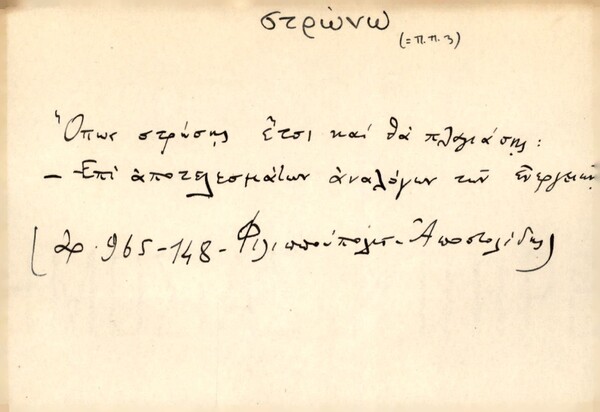 στρώνω
(=π.π. 3)
Ὅπως στρώσῃς ἔτσι καὶ θὰ πλαγιάσῃς:
– Ἐπὶ ἀποτελεσμάτων ἀναλόγων τῶν ἐνεργειῶν
965-148- Φιλιππούπολις- Ἀποστολίδης)